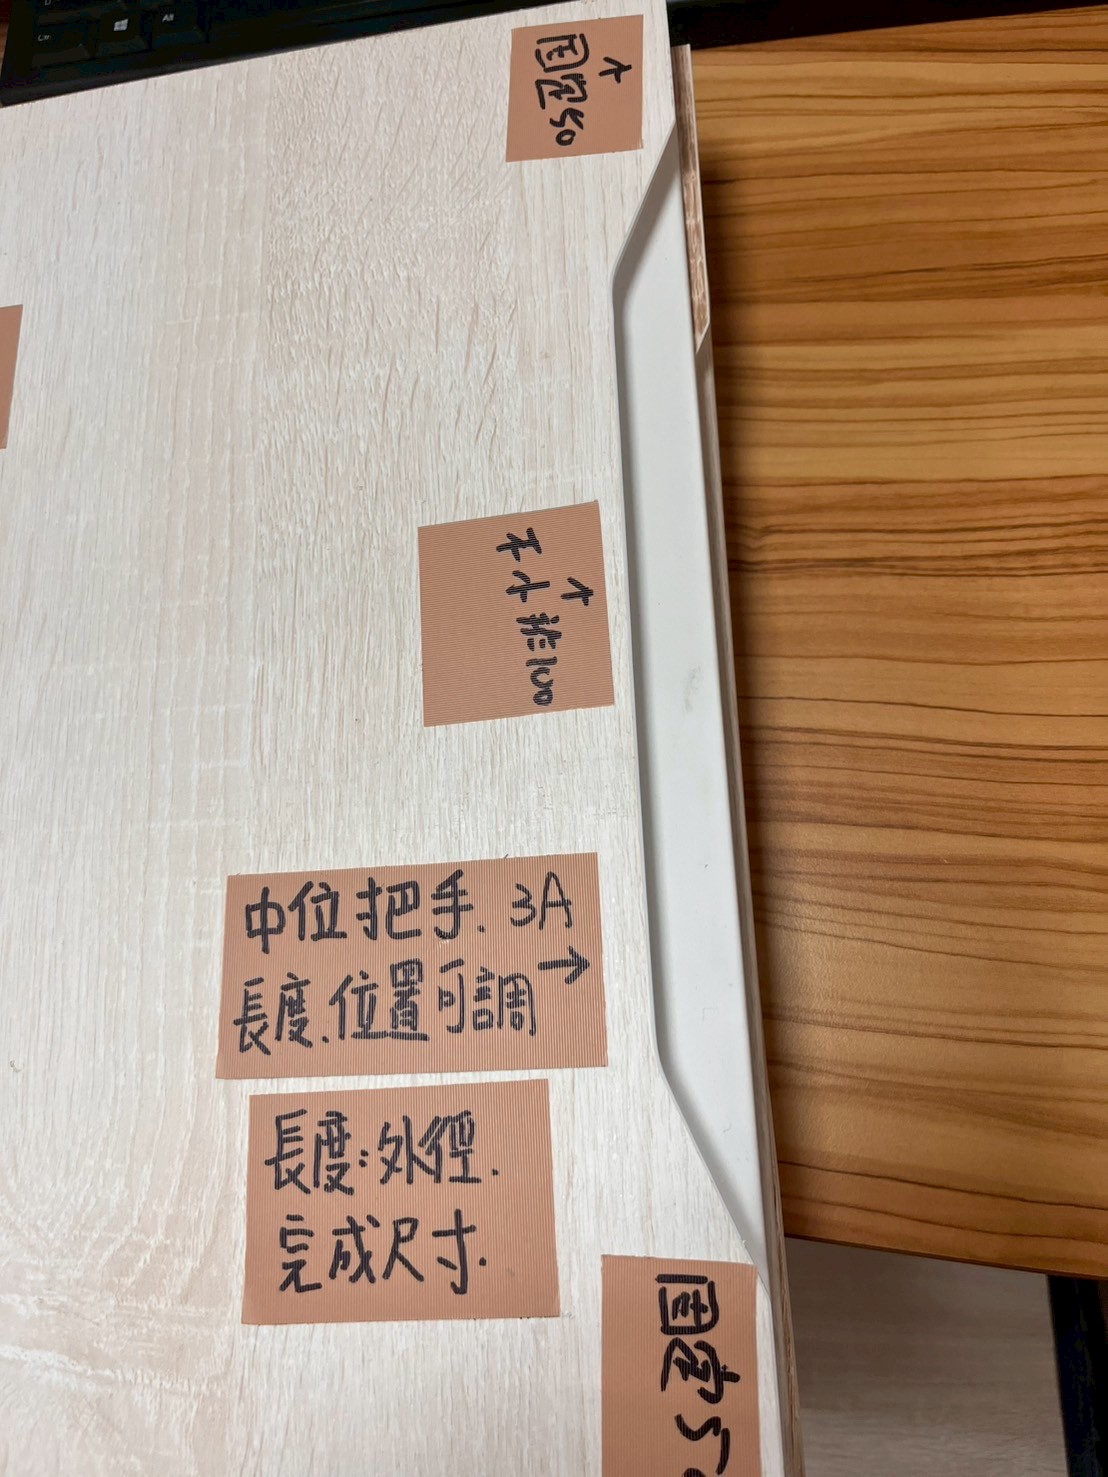 固定50
不小於100
中位把手. 3A
長度.位置可調
長度:外徑.
完成尺寸.
固定5